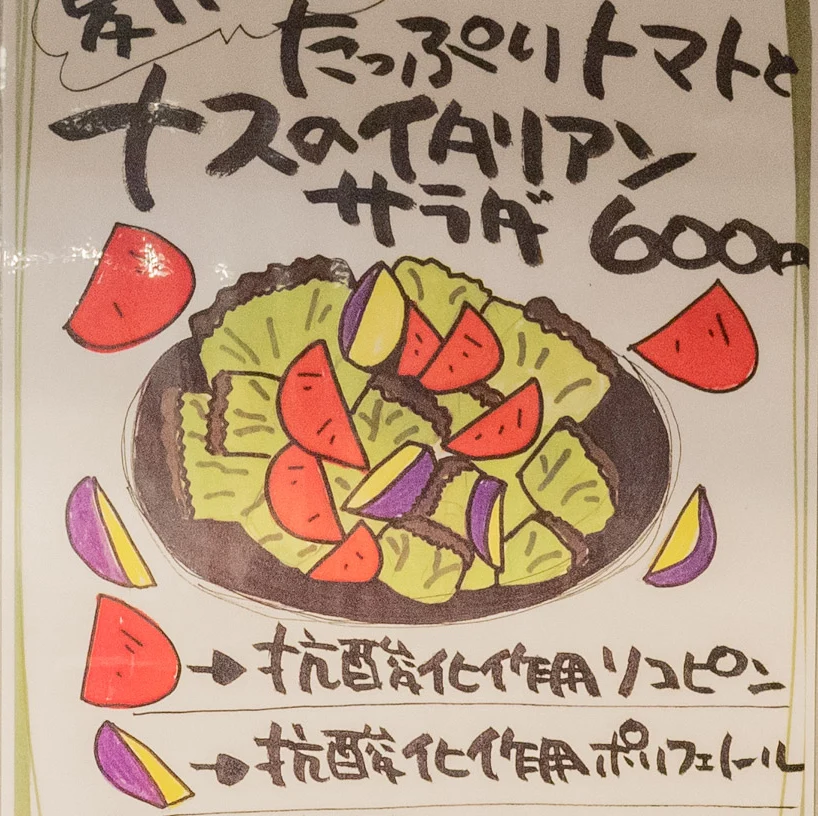 たっぷりトマトと
ナスのイタリアン
サラダ 600円
→抗酸化作用リコピン
→抗酸化作用ポリフェノール